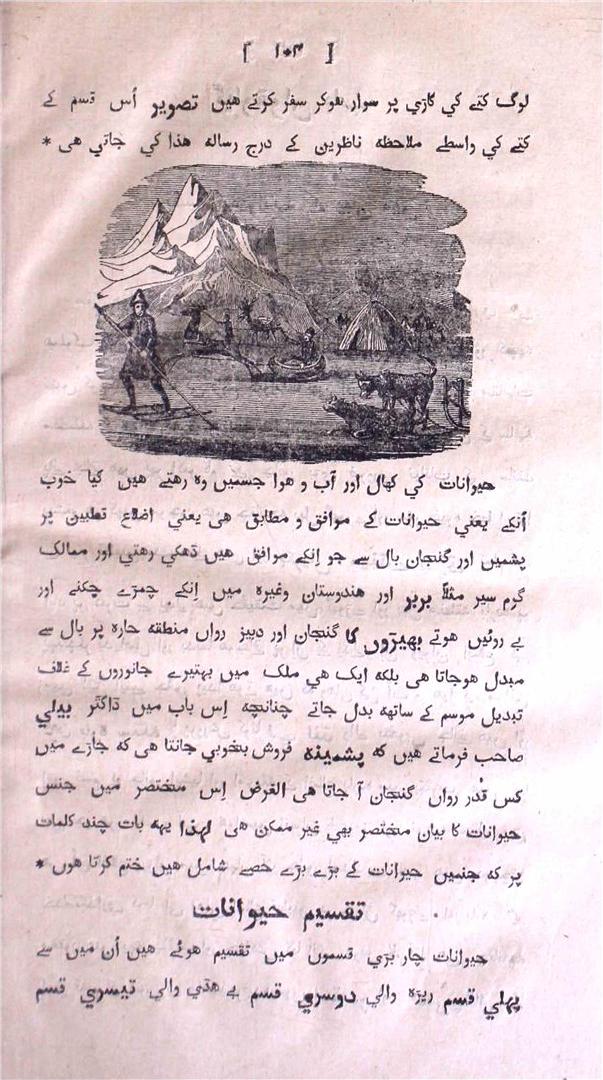 [ ۱۰۴ ]
لوگ کتے کي گاڑي پر سوار هوکر سفر کرتے هیں تصویر اُس قسم کے
کتے کي واسطے ملاحظه ناظرین کے درج رساله هذا کي جاتي هی *
حیوانات کي کهال اور آب و هوا جسمیں وه رهتے هیں کیا خوب
اُنکے یعني حیوانات کے موافق و مطابق هی یعني اضلاع قطبین پر
پشمیں اور گنجان بال سے جو اِنکے موافق هیں ڈهکي رهتي اور ممالک
گرم سیر مثلاً بربر اور هندوستان وغیره میں اِنکے چمڑے چکنے اور
بے روئیں هوتے بهیڑوں کا گنجان اور دبیز رواں منطقه حاره پر بال سے
مبدل هوجاتا هی بلکه ایک هي ملک میں بهتیرے جانوروں کے غلاف
تبدیل موسم کے ساتهه بدل جاتے چنانچه اِس باب میں ڈاکٹر بیلي
صاحب فرماتے هیں که پشمینه فروش بخوبي جانتا هی که جاڑے میں
کس قدر رواں گنجان آ جاتا هی الغرض اِس مختصر میں جنس
حیوانات کا بیان مختصر بهي غیر ممکن هی لهذا یهه بات چند کلمات
پر که جنمیں حیوانات کے بڑے بڑے حصے شامل هیں ختم کرتا هوں *
تقسیم حیوانات
حیوانات چار بڑي قسموں میں تقسیم هوئے هیں اُن میں سے
پہلي قسم ریڑه والي دوسري قسم بے هڈي والي تیسري قسم